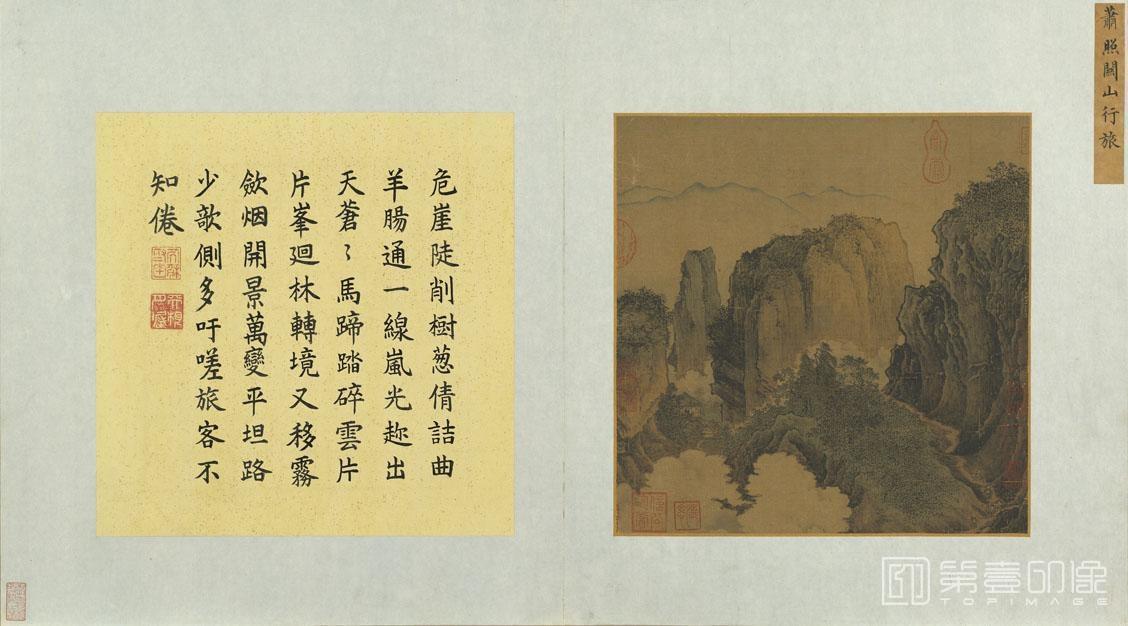 蕭照關山行旅
危崖陡削樹葱倩詰曲
羊腸通一線嵐光趂出
天蒼〻馬蹄踏碎雲片
片峯廻林轉境又移霧
斂烟開景萬變平坦路
少歌側多吁嗟旅客不
知倦
第壹印像
TOPIMAGE